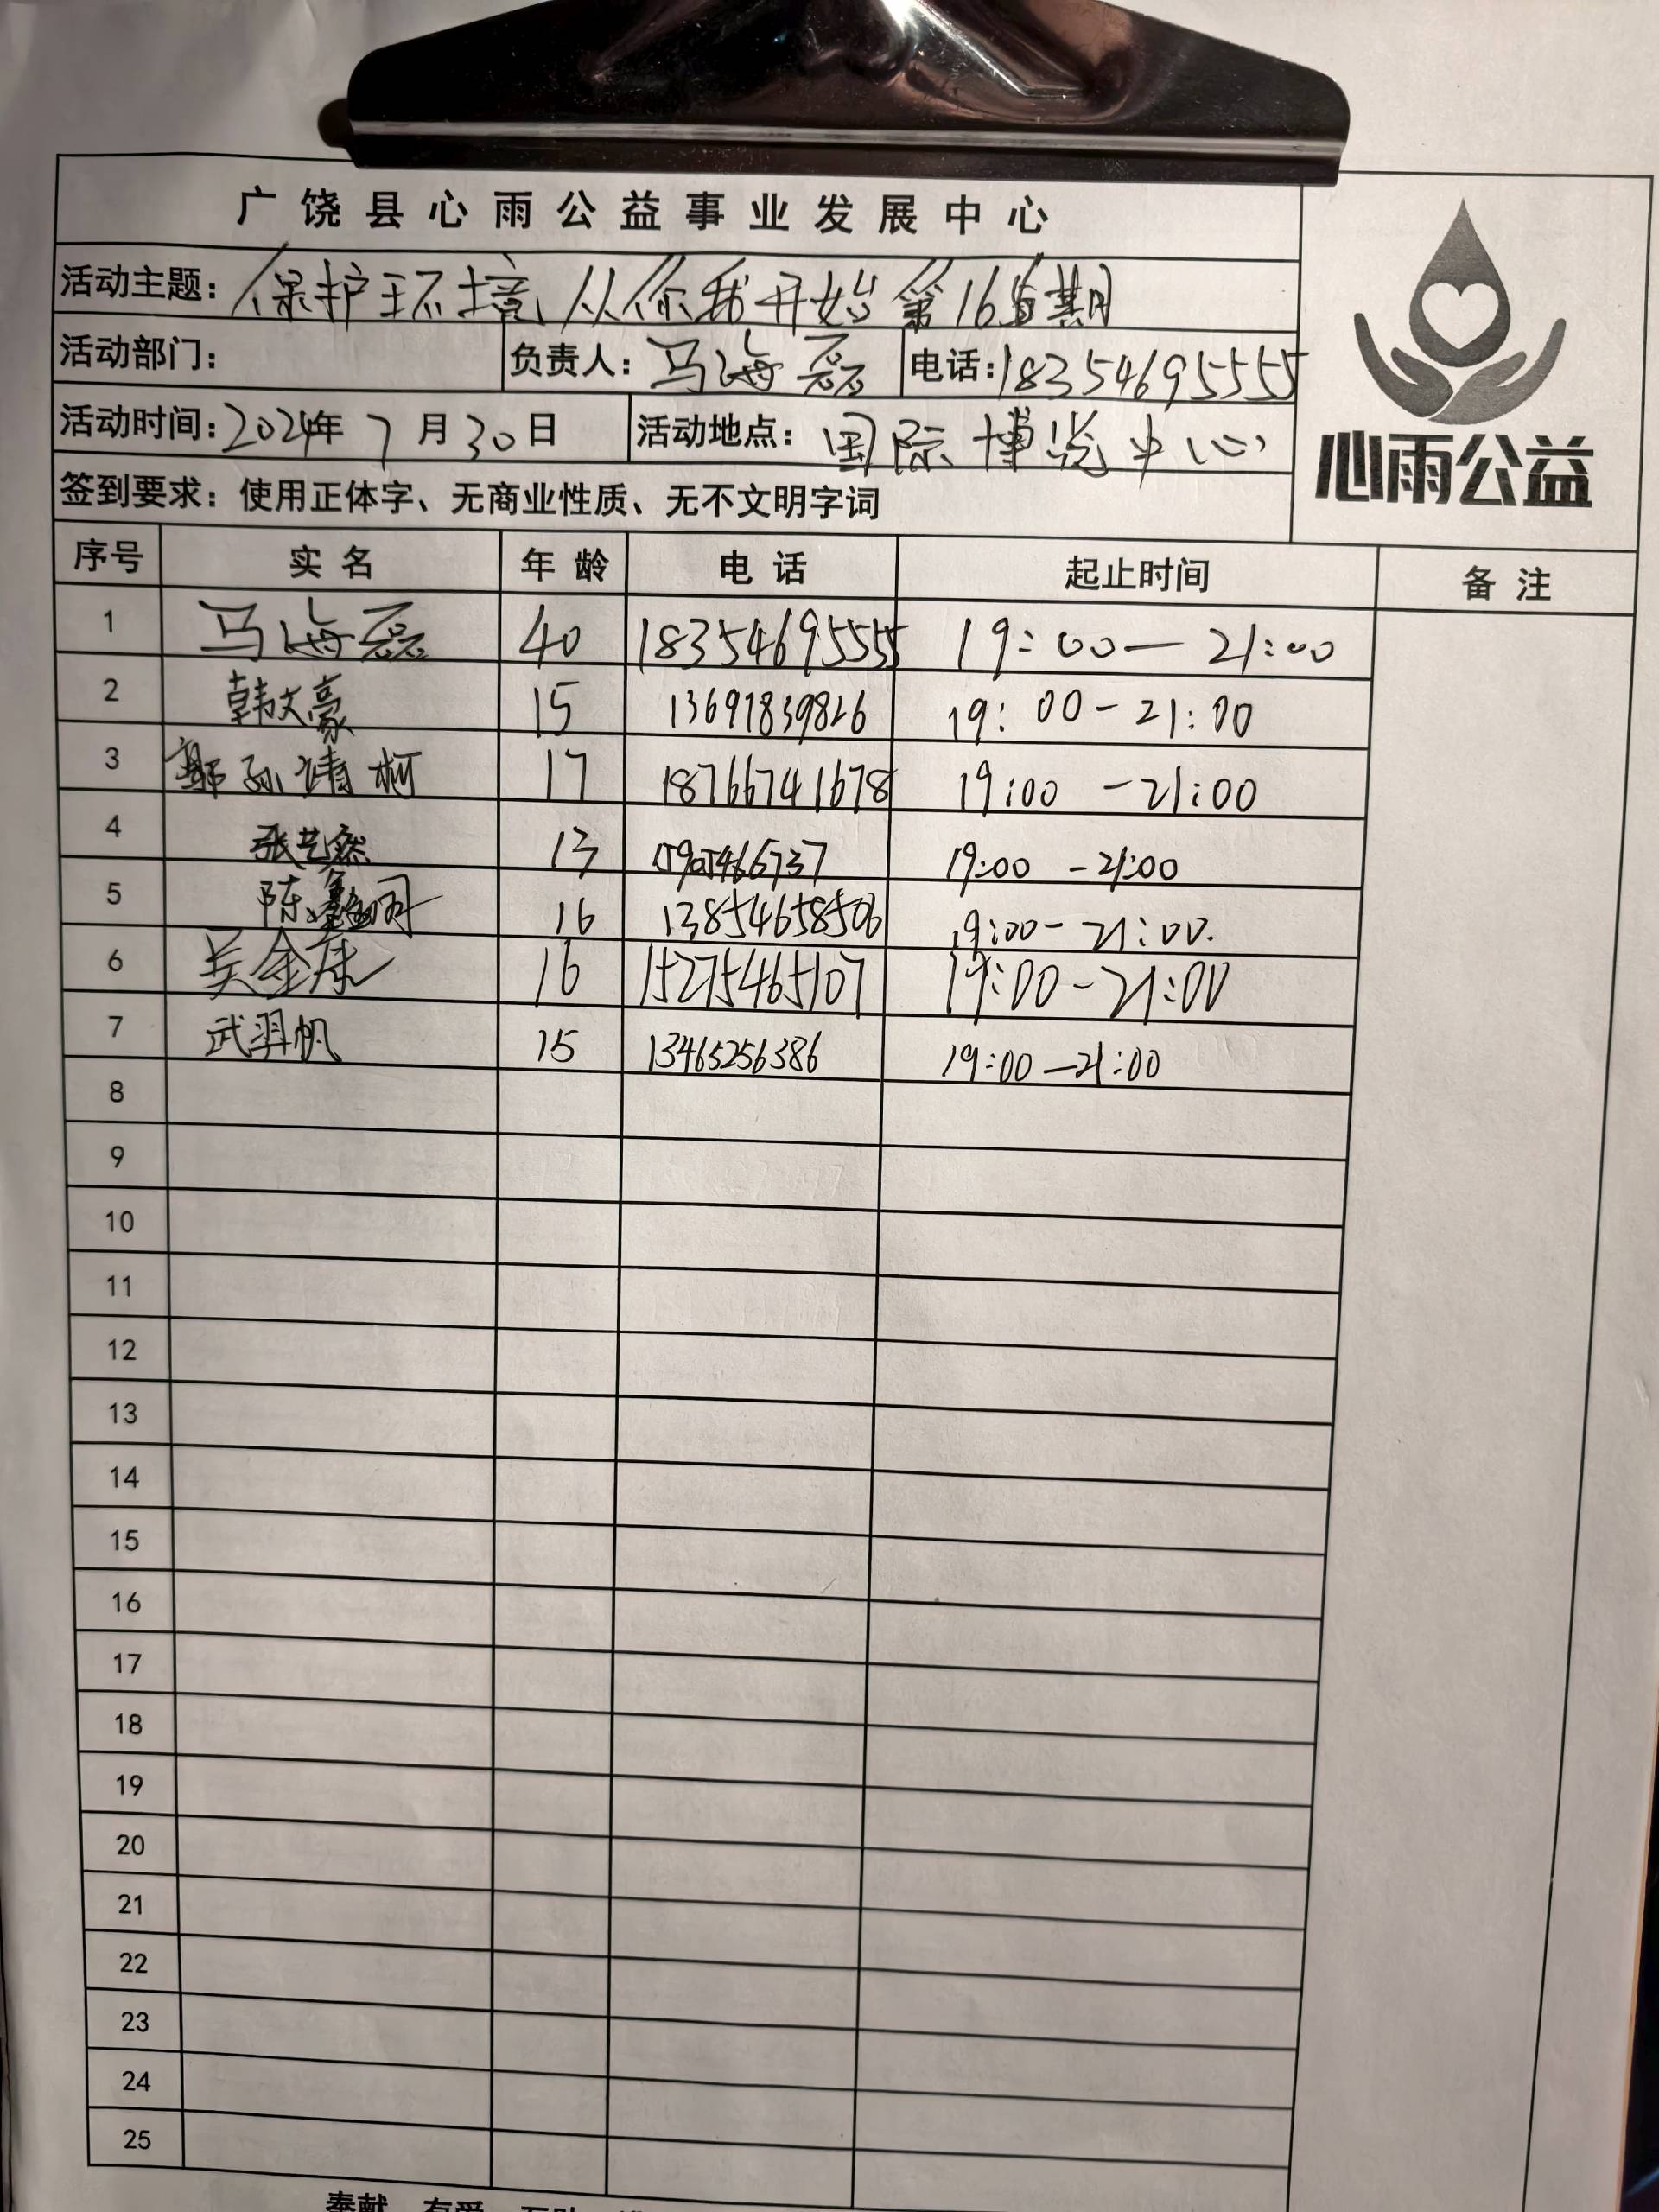 广饶县心雨公益事业发展中心
活动主题：保护环境从你我开始第165期
活动部门： 负责人：马海磊 电话：18354695555
活动时间：2024年7月30日 活动地点：国际博览中心
签到要求：使用正体字、无商业性质、无不文明字词
心雨公益
序号 实名 年龄 电话 起止时间 备注
1 马海磊 40 18354695555 19:00—21:00
2 韩文豪 15 13697839826 19:00-21:00
3 郭孙靖柯 17 18766741678 19:00-21:00
4 张艺然 13 19:00-21:00
5 陈 16 13854658506 19:00-21:00.
6 吴金库 16 15275465107 19:00-21:00
7 武羿帆 15 13465256386 19:00—21:00
8
9
10
11
12
13
14
15
16
17
18
19
20
21
22
23
24
25
奉献 友爱 互助